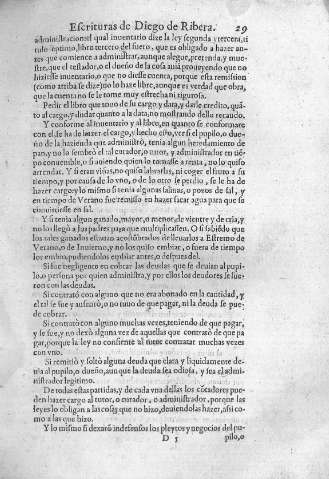 Escrituras de Diego de Ribera. 29
administracion: el qual inventario dize la ley segunda y tercera, ti
tulo septimo, libro tercero del fuero, que es obligado a hazer an-
tes que comience a administrar, aunque alegue, prete nda, y mue-
stre, que el testador, o el dueño de la cosa avia proveydo que no
hiziesse inventario, o que no diesse cuenta, porque esta remission
(como arriba se dize) no lo haze libre, aunque es verdad que obra,
que la cuenta no se le tome muy estrecha ni rigurosa.
Pedir el libro que tuvo de su cargo y data, y darle credito, quãto
al cargo, y dudar quanto a la data, no mostrando dello recaudo.
Y conforme al inventario y al libro, en quanto se conformare
con el, se ha de hazer el cargo, y hecho esto, ver si el pupilo, o due-
no de la hazienda que administró, tenia algun heredamiento de
pan, y no lo sembró el tal curador, o tutor, y administrador en tiẽ-
po convenible, o si aviendo quien lo tomasse a renta, no lo quiso
arrendar. Y si eran viñas, no quiso labrarlas, ni coger el fruto a su
tiempo, y por causa de lo vno, o de lo otro se perdio, se le ha de
hazer cargo: y lo mismo si tenia algunas salinas, o pozos de sal, y
en tiempo de Verano fue remisso en hazer sacar agua para que se
convirtiesse en sal.
Y si tenia algun ganado, mayor, o menor, de vientre y de cria, y
no los llegó a sus padres para que multiplicassen. O si sabiẽdo que
los tales ganados estavan acostũbrados de llevarlos a Estremo de
Verano, o de Invierno, y no los quiso embiar, o fuera de tiempo
los embio, pudiendolos embiar antes, o despues del.
Si fue negligente en cobrar las deudas que se devian al pupi-
lo, o persona por quien administra, y por ellos los deudores se fue-
ron con las deudas.
Si contrató con alguno que no era abonado en la cantidad, y
el tal se fue y ausentó, o no tuvo de que pagar, ni la deuda se pue-
de cobrar.
Si contrató con alguno muchas vezes, teniendo de que pagar,
y se fue, y no dexó alguna vez de aquellas que contrató de que pa
gar, porque la ley no consiente al tutor contratar muchas vezes
con vno.
Si remitió y soltó alguna deuda que clara y liquidamente de-
via al pupilo, o dueño, aunque la deuda sea odiosa, y sea el admi-
nistrador legitimo.
De todas estas partidas, y de cada vna dellas los cõtadores pue-
den hazer cargo al tutor, o curador, o administrador, porque las
leyes lo obligan a las cosas que no hizo, deviendolas hazer, assi co-
mo a las que hizo.
Y lo mismo si dexaró indefensos los pleytos y negocios del pu-
D 5 pilo, o